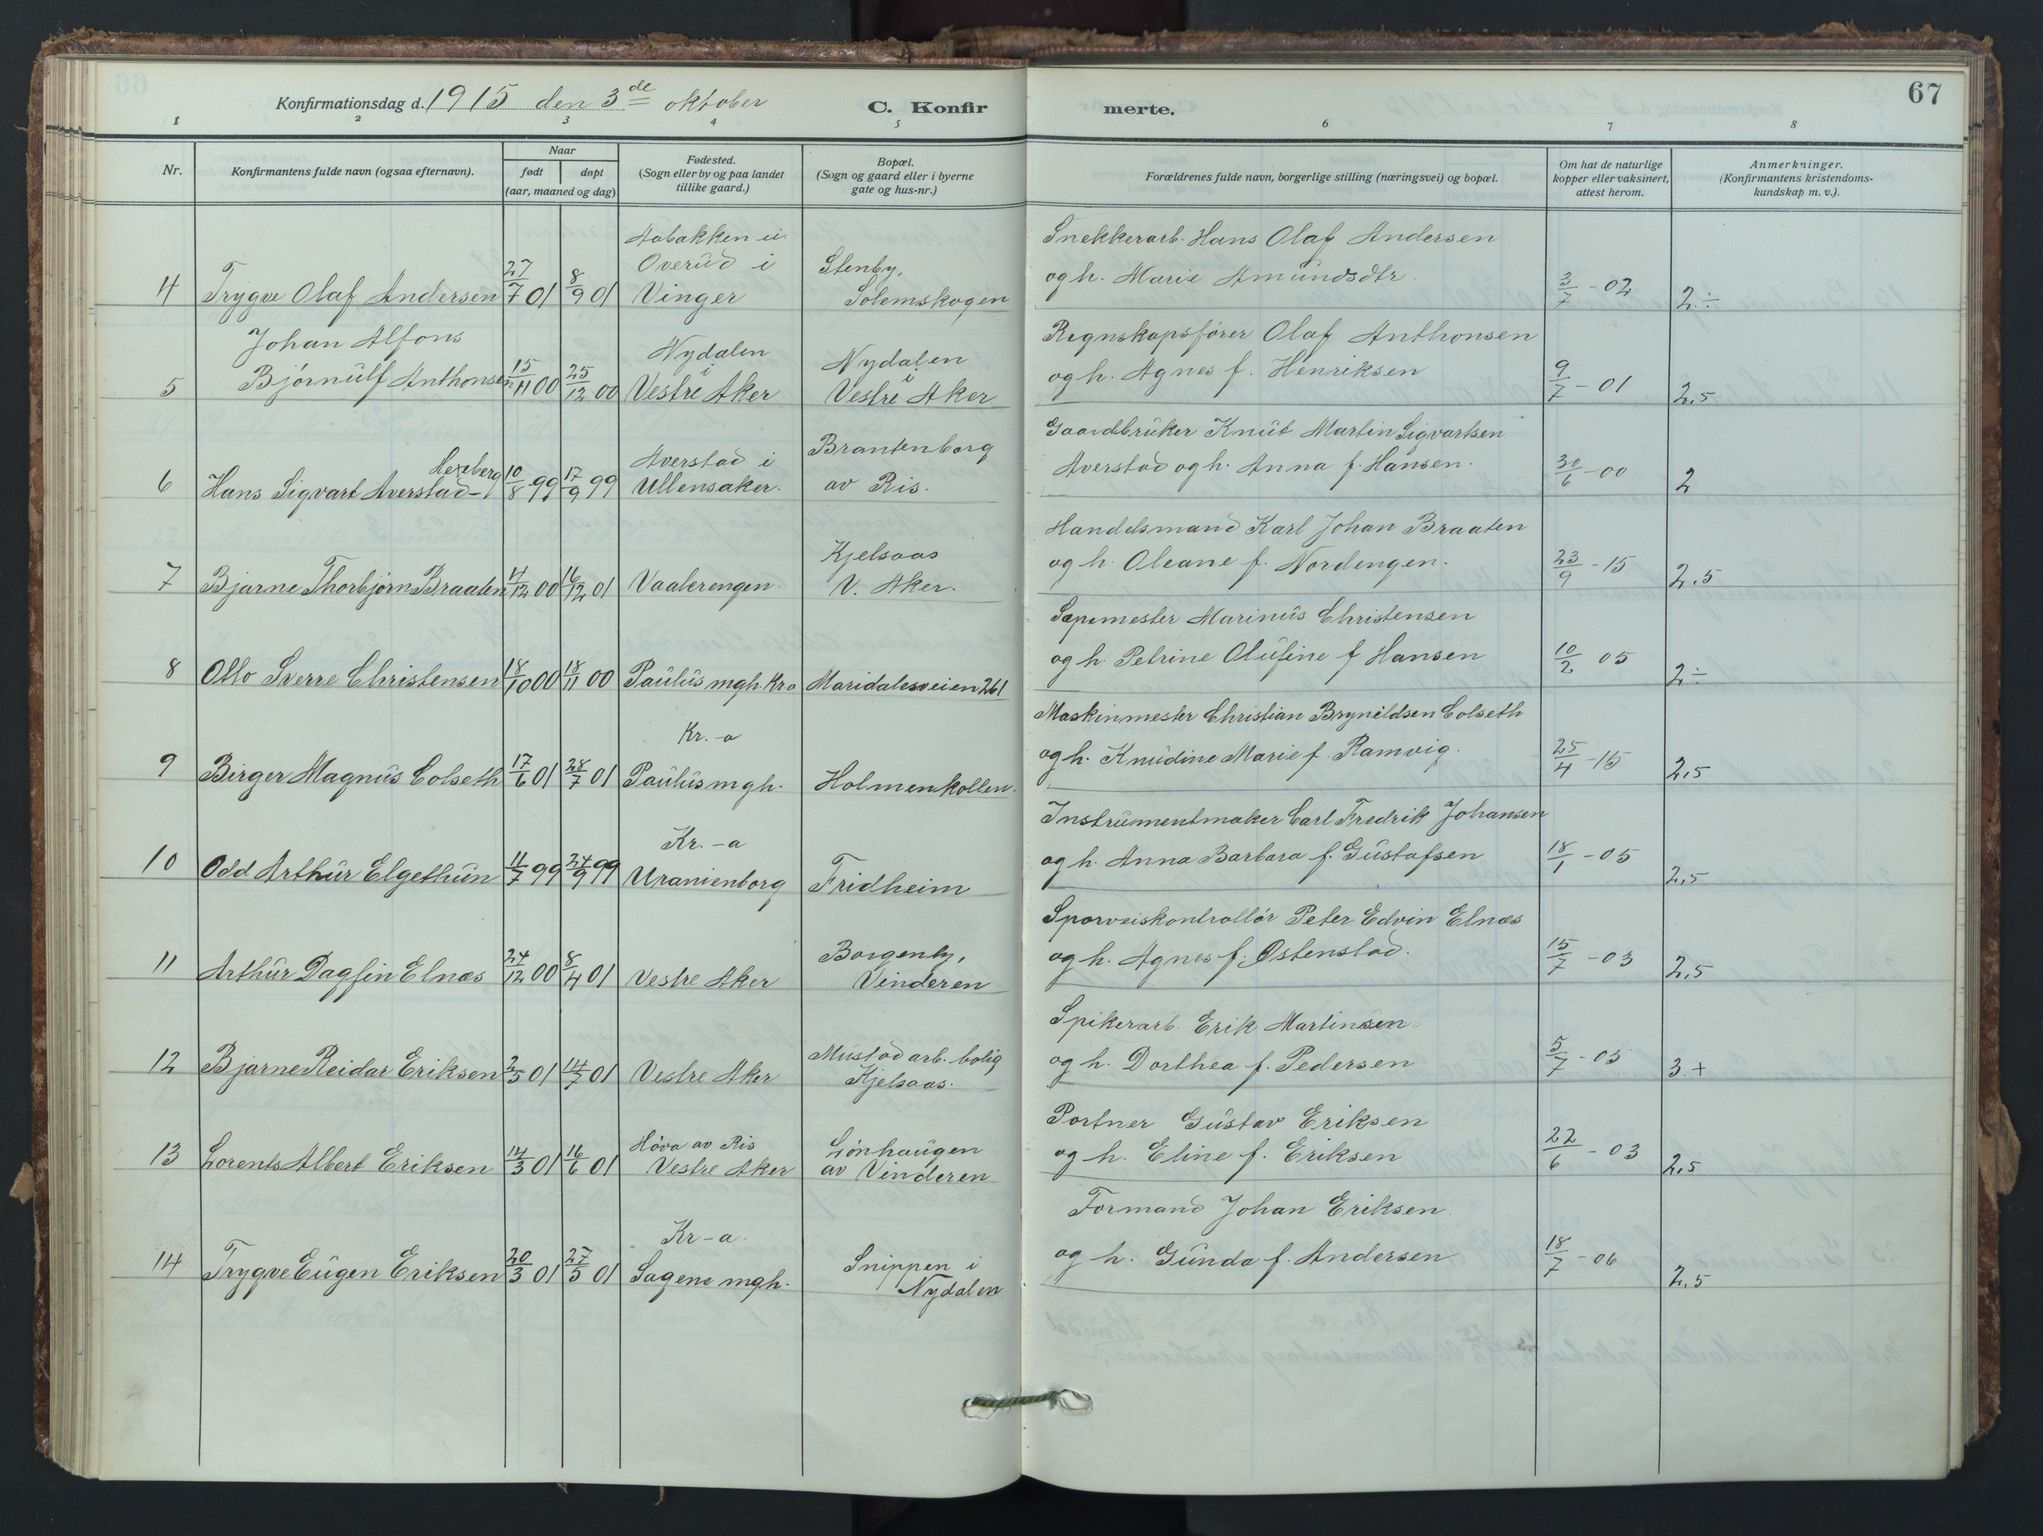 67
Konfirmationsdag d. 1915 den 3de oktober
C. Konfirmerte.
1 2 3 4 5 6 7 8
Nr.
Konfirmantens fulde navn (ogsaa efternavn).
Naar
født døpt
(aar, maaned og dag)
Fødested.
(Sogn eller by og paa landet
tillike gaard.)
Bopæl.
(Sogn og gaard eller i byerne
gate og hus-nr.)
Forældrenes fulde navn, borgerlige stilling (næringsvei) og bopæl.
Om hat de naturlige
kopper eller vaksinert,
attest herom.
Anmerkninger.
(Konfirmantens kristendoms-
kundskap m. v.).
4 Trygve Olaf Andersen 27/7 01 8/9 01
Aabakken u.
Overud i
Vinger
Stenby,
Solemskogen
Snekkerarb. Hans Olaf Andersen
og h. Marie Amundsdtr.
3/7 - 02 2÷
5 Johan Alfons
Bjørnulf Anthonsen 15/11 00 25/12 00
Nydalen
i
Vestre Aker
Nydalen
i
Vestre Aker
Regnskapsfører Olaf Anthonsen
og h. Agnes f. Henriksen
9/7 - 01 2,5
6 Hans Sigvart Averstad-Hexeberg 10/8 99 17/9 99
Averstad i
Ullensaker.
Brantenborg
av Ris.
Gaardbruker Knut Martin Sigvartsen
Averstad og h. Anna f. Hansen.
30/6 - 00 2
7 Bjarne Thorbjørn Braaten 4/12 00 16/12 01
Vaalerengen.
Kjelsaas
V. Aker.
Handelsmand Karl Johan Braaten
og h. Oleane f. Nordengen.
23/9 - 15 2,5
8 Otto Sverre Christensen 18/10 00 18/11 00
Paulus mgh. Kra
Maridalsveien 261
Sæpemester Marinus Christensen
og h. Petrine Olufine f. Hansen
10/2 05 2÷
9 Birger Magnus Colseth 17/6 01 28/7 01
Kr.-a
Paulus mgh.
Holmenkollen.
Maskinmester Christian Bryneldsen Colseth
og h. Knudine Marie f. Ramvig.
25/4 - 15 2,5
10 Odd Arthur Elgethun 11/7 99 24/9 99
Kr.-a
Uranienborg
Fridheim
Instrumentmaker Carl Fredrik Johansen
og h. Anna Barbara f. Gustafsen
18/1 - 05 2,5
11 Arthur Dagfin Elnæs 24/12 00 8/4 01
Vestre Aker
Borgenby,
Vinderen
Sporveiskontrollør Peter Edvin Elnæs
og h. Agnes f. Østenstad.
15/7 - 03 2,5
12 Bjarne Reidar Eriksen 2/5 01 14/7 01
Vestre Aker
Mustad arb. bolig
Kjelsaas.
Spikerarb. Erik Martinsen
og h. Dorthea f. Pedersen
5/7 - 05 3+
13 Lorents Albert Eriksen 14/3 01 16/6 01
Høva av Ris
Vestre Aker
Lønhaugen
av Vinderen
Portner Gustav Eriksen
og h. Eline f. Eriksen
22/6 - 03 2,5
14 Trygve Eugen Eriksen 20/3 01 27/5 01
Kr-a.
Sagene mgh.
Snippen i
Nydalen
Formand Johan Eriksen.
og h. Gunda f. Andersen
18/7 - 06 2,5